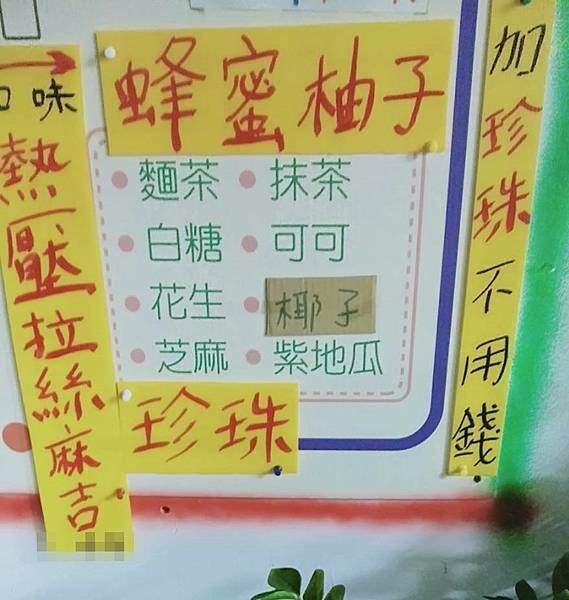 口味
蜂蜜柚子
麵茶 抹茶
白糖 可可
花生 椰子
芝麻 紫地瓜
珍珠
熱壓拉絲麻吉
加珍珠不用錢